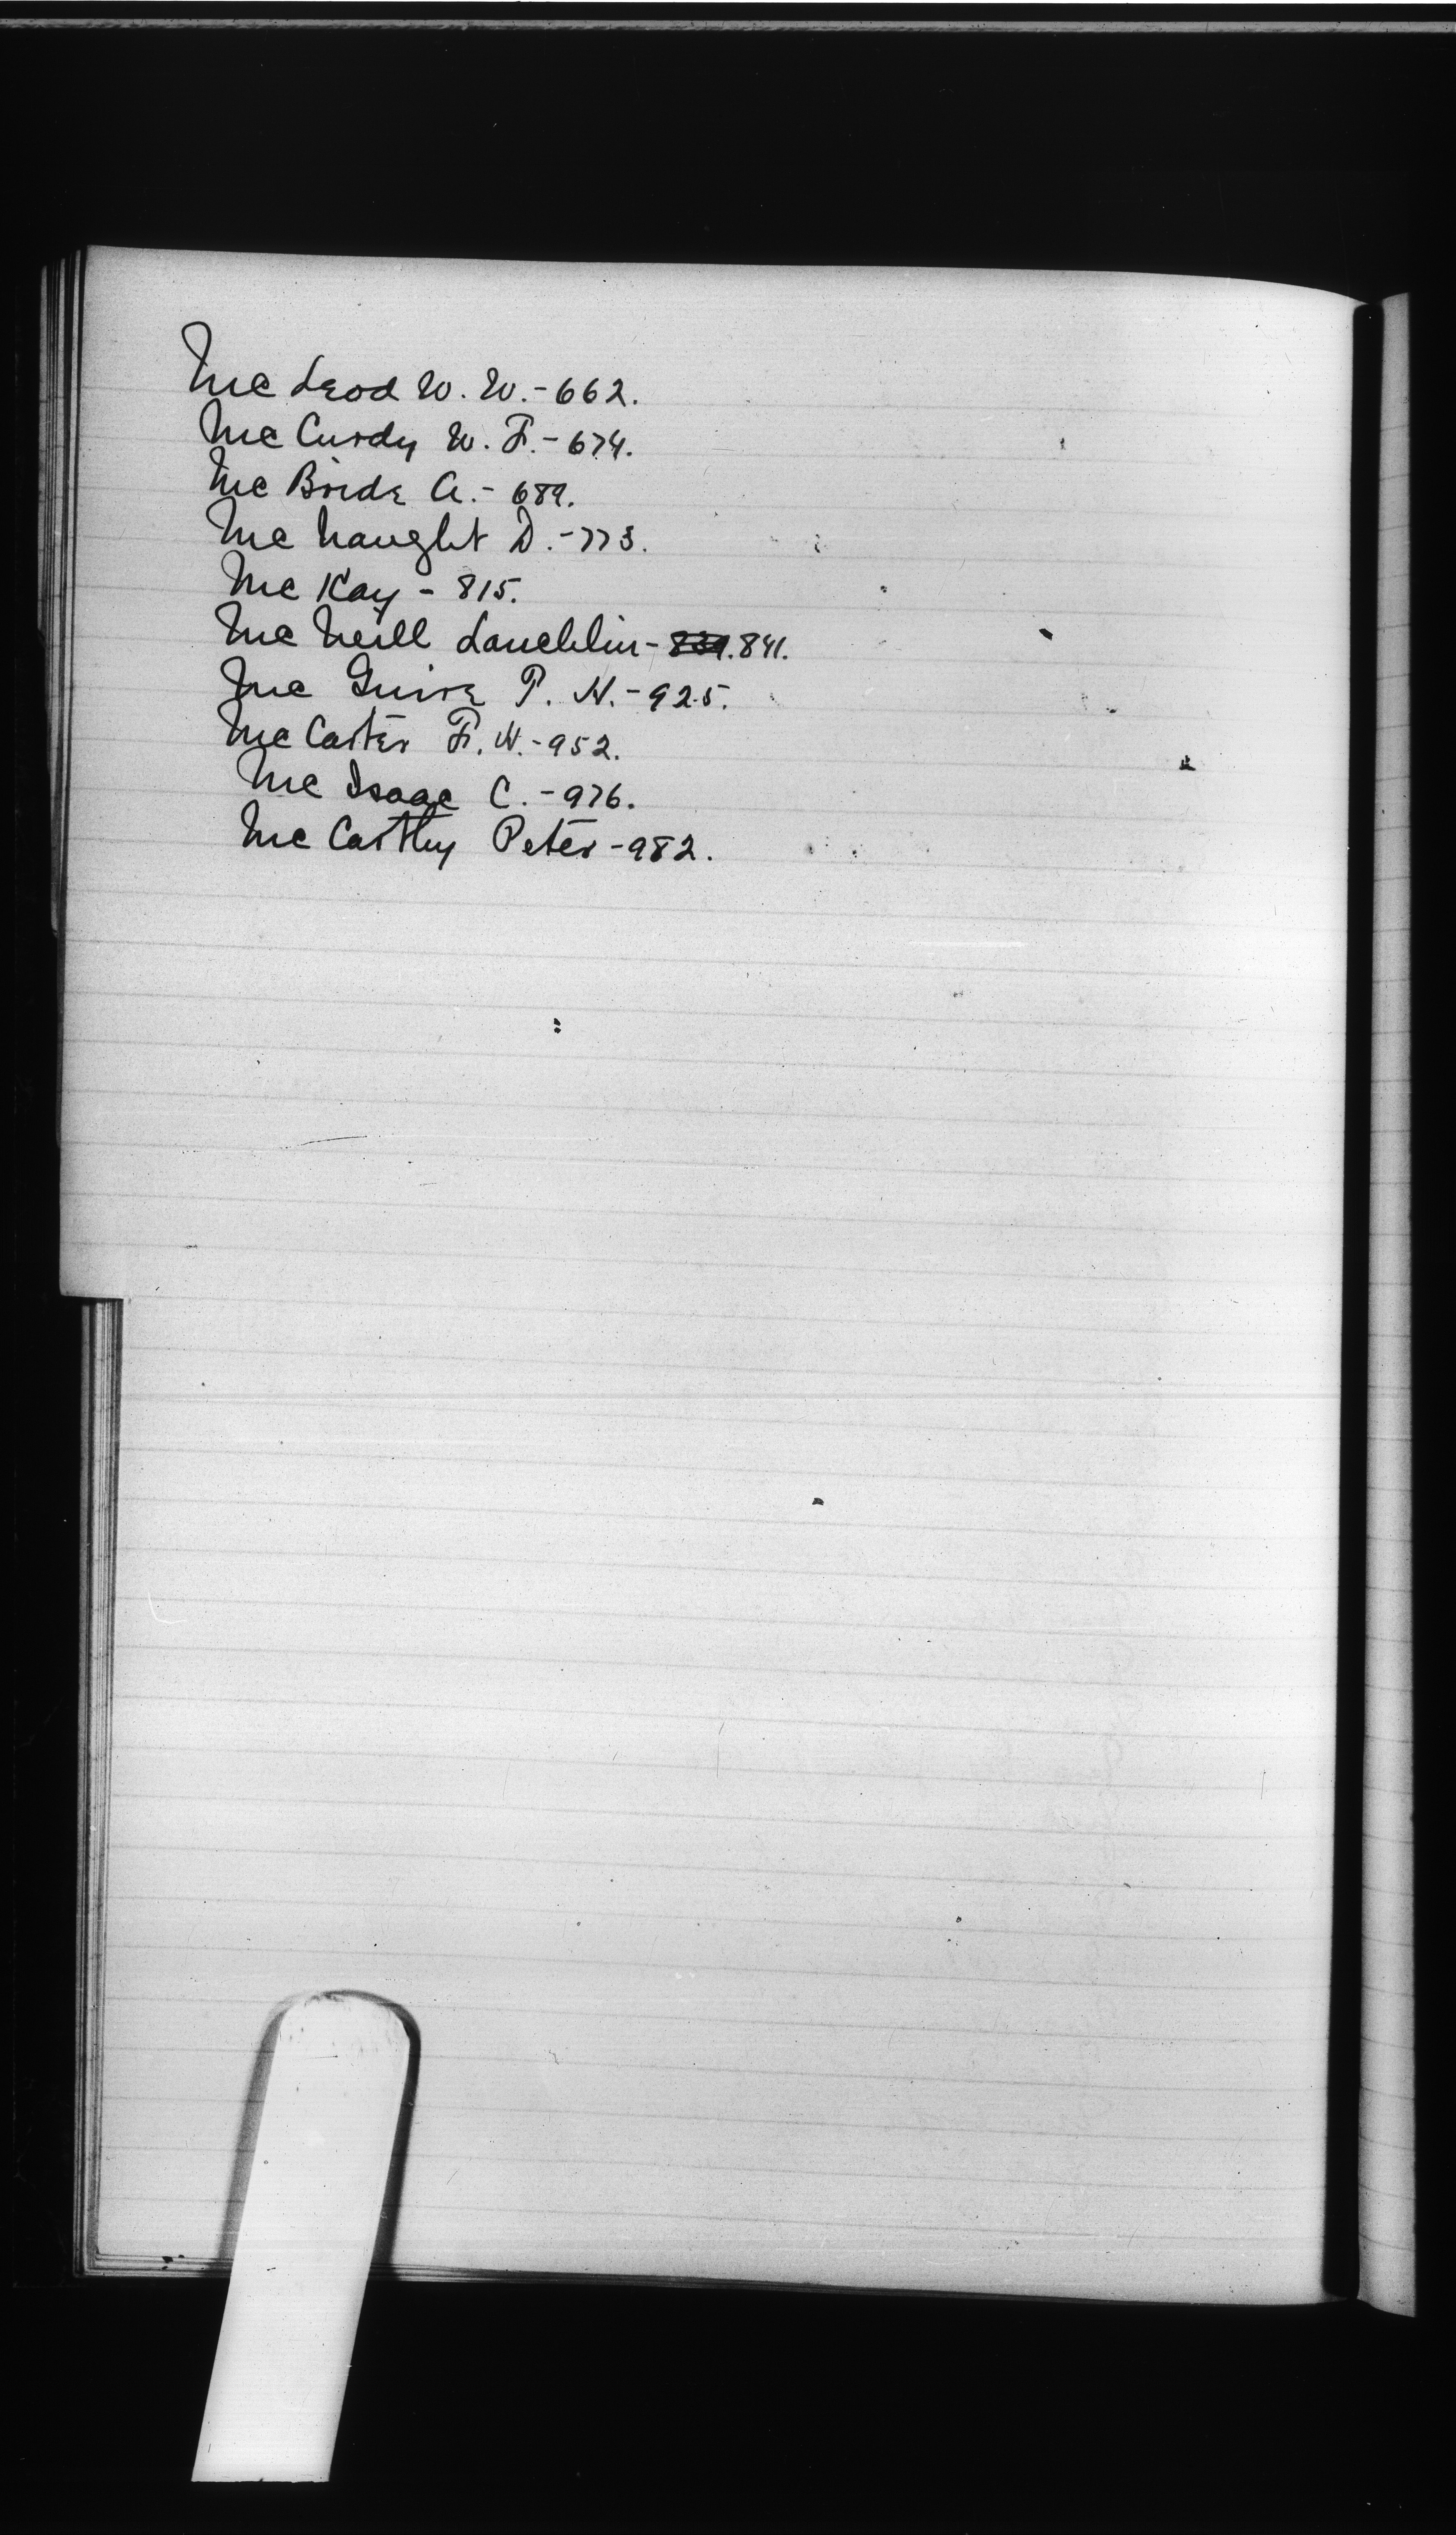 Mc Leod W. W. - 662.
Mc Curdy W. F. - 674.
Mc Bride A. - 689.
Mc Naught D. - 773.
Mc Kay - 815.
Mc Neill Lauchlin - 839. 841.
Mc Guire P. H. - 925.
Mc Carter F. W. - 952.
Mc Isaac C. - 976.
Mc Carthy Peter - 982.